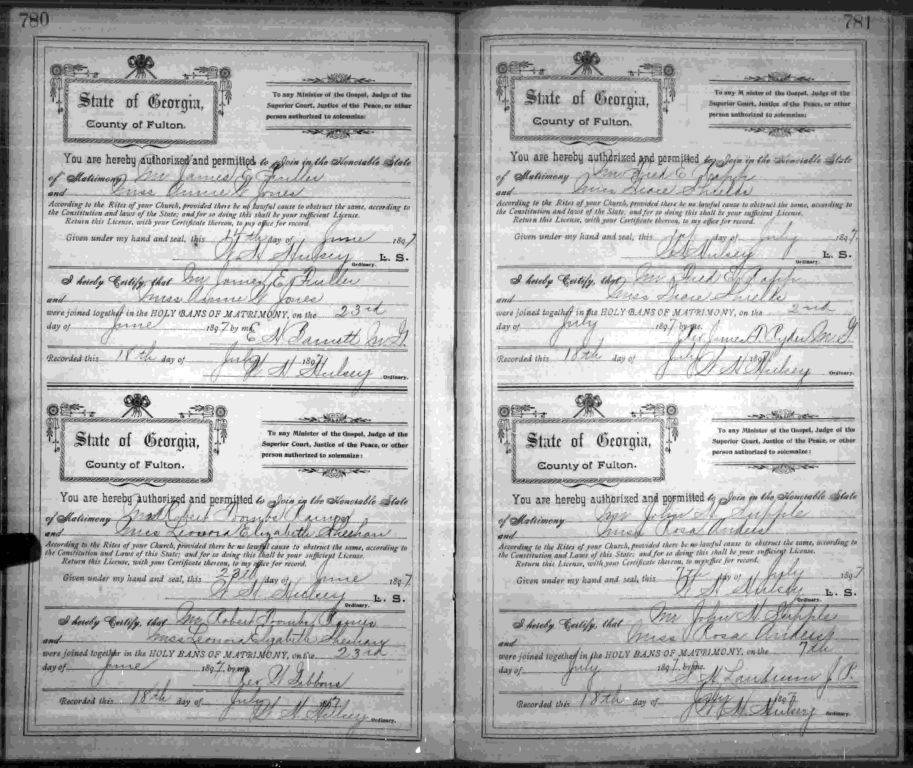 780
State of Georgia,
County of Fulton.
To any Minister of the Gospel, Judge of the
Superior Court, Justice of the Peace, or other
person authorized to solemnize:
You are hereby authorized and permitted to Join in the Honorable State
of Matrimony Mr James E Fuller
and Miss Annie C Jones
According to the Rites of your Church, provided there be no lawful cause to obstruct the same, according to
the Constitution and laws of the State; and for so doing this shall be your sufficient License.
Return this License, with your Certificate thereon, to my office for record.
Given under my hand and seal, this day of June 1897
W H Hulsey L. S.
Ordinary.
I hereby Certify, that Mr James E Fuller
and Miss Annie C Jones
were joined together in the HOLY BANS OF MATRIMONY, on the 23rd
day of June 1897 by me.
E H Barnett M G
Recorded this 18th day of July 1897
W H Hulsey
Ordinary.
State of Georgia,
County of Fulton.
To any Minister of the Gospel, Judge of the
Superior Court, Justice of the Peace, or other
person authorized to solemnize:
You are hereby authorized and permitted to Join in the Honorable State
of Matrimony Mr Robert
and Miss Leonora Elizabeth Sheehan
According to the Rites of your Church, provided there be no lawful cause to obstruct the same, according to
the Constitution and Laws of this State; and for so doing this shall be your sufficient License.
Return this License, with your Certificate thereon, to my office for record.
Given under my hand and seal, this 23rd day of June 1897
W H Hulsey L. S.
Ordinary.
I hereby Certify, that Mr Robert
and Miss Leonora Elizabeth Sheehan
were joined together in the HOLY BANS OF MATRIMONY, on the 23rd
day of June 1897 by me.
Geo Y Gibbons
Recorded this 18th day of July 1897
W H Hulsey
Ordinary.
781
State of Georgia,
County of Fulton.
To any Minister of the Gospel, Judge of the
Superior Court, Justice of the Peace, or other
person authorized to solemnize:
You are hereby authorized and permitted to Join in the Honorable State
of Matrimony Mr Fred E
and Miss Shields
According to the Rites of your Church, provided there be no lawful cause to obstruct the same, according to
the Constitution and laws of the State; and for so doing this shall be your sufficient License.
Return this License, with your Certificate thereon, to my office for record.
Given under my hand and seal, this 1st day of July 1897.
W H Hulsey L. S.
Ordinary.
I hereby Certify, that Mr Fred E
and Miss Shields
were joined together in the HOLY BANS OF MATRIMONY, on the 2nd
day of July 1897 by me.
Rev James A M G
Recorded this 18th day of July 1897
W H Hulsey
Ordinary.
State of Georgia,
County of Fulton.
To any Minister of the Gospel, Judge of the
Superior Court, Justice of the Peace, or other
person authorized to solemnize:
You are hereby authorized and permitted to Join in the Honorable State
of Matrimony Mr John H Supple
and Miss Rosa
According to the Rites of your Church, provided there be no lawful cause to obstruct the same, according to
the Constitution and Laws of this State; and for so doing this shall be your sufficient License.
Return this License, with your Certificate thereon, to my office for record.
Given under my hand and seal, this 7th day of July 1897
W H Hulsey L. S.
Ordinary.
I hereby Certify, that Mr John H Supple
and Miss Rosa
were joined together in the HOLY BANS OF MATRIMONY, on the 7th
day of July 1897 by me.
J P.
Recorded this 18th day of July 1897
W H Hulsey
Ordinary.